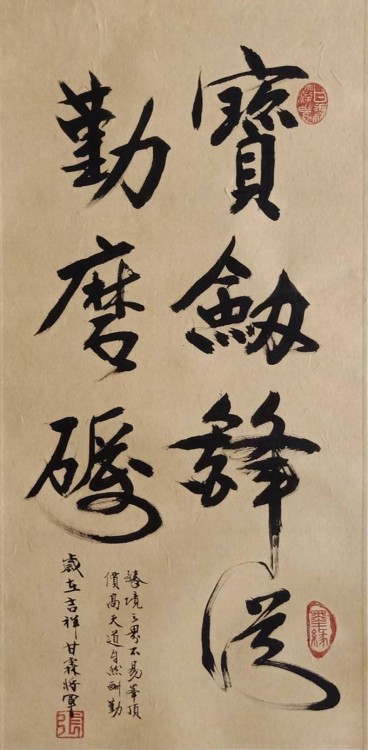 寶劍鋒從
勤磨礪
境之界不易峯頂
價高天道自然酬勤
歲在吉祥甘霖将軍
墨緣
張